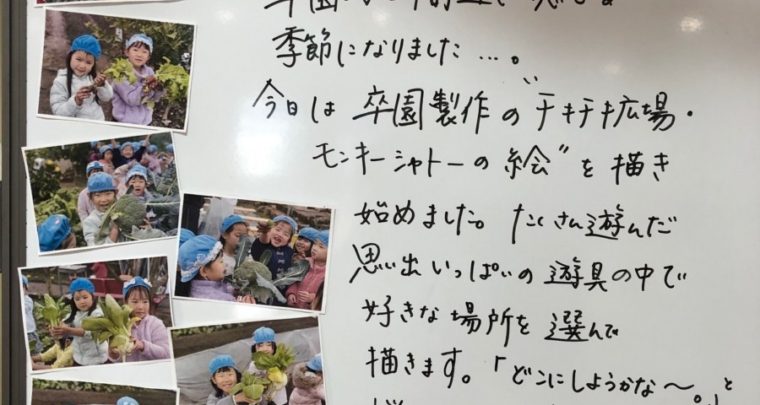 季節になりました…。
今日は 卒園製作の "チキチキ広場・
モンキーシャトーの絵" を 描き
始めました。たくさん遊んだ
思い出いっぱいの 遊具の中で
好きな 場所を 選んで
描きます。「どこにしようかな〜。」と